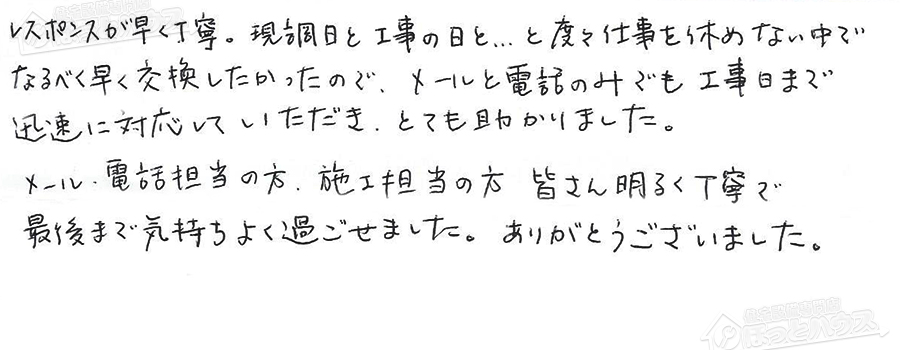 レスポンスが早く丁寧。現調日と工事の日と…と度々仕事を休めない中で
なるべく早く交換したかったので、メールと電話のみでも工事日まで
迅速に対応していただき、とても助かりました。
メール・電話担当の方、施工担当の方 皆さん明るく丁寧で
最後まで気持ちよく過ごせました。ありがとうございました。